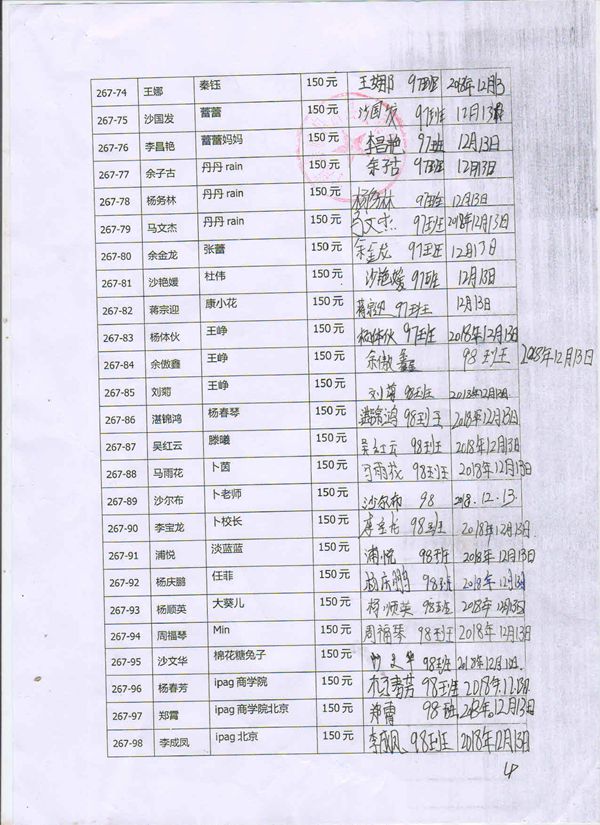 267-74 王娜 秦钰 150元 王娜 97班 2018年12月13
267-75 沙国发 蕾蕾 150元 沙国发 97班 12月13日
267-76 李昌艳 蕾蕾妈妈 150元 李昌艳 97班 12月13日
267-77 余子古 丹丹rain 150元 余子古 97班 12月13日
267-78 杨务林 丹丹rain 150元 杨务林 97班 12月13日
267-79 马文杰 丹丹rain 150元 马文杰 97班 2018年12月13日
267-80 余金龙 张蕾 150元 余金龙 97班 12月13日
267-81 沙艳媛 杜伟 150元 沙艳媛 97班 12月13日
267-82 蒋宗迎 康小花 150元 蒋宗迎 97班 12月13日
267-83 杨体伙 王峥 150元 杨体伙 97班 2018年12月13日
267-84 余傲鑫 王峥 150元 余傲鑫 98班 2018年12月13日
267-85 刘菊 王峥 150元 刘菊 98班 2018年12月13日
267-86 湛锦鸿 杨春琴 150元 湛锦鸿 98班 2018年12月13日
267-87 吴红云 滕曦 150元 吴红云 98班 2018年12月13日
267-88 马雨花 卜茵 150元 马雨花 98班 2018年12月13日
267-89 沙尔布 卜老师 150元 沙尔布 98 2018.12.13.
267-90 李宝龙 卜校长 150元 李宝龙 98班 2018年12月13日
267-91 浦悦 淡蓝蓝 150元 浦悦 98班 2018年12月13日
267-92 杨庆鹏 任菲 150元 杨庆鹏 98班 2018年12月13日
267-93 杨顺英 大葵儿 150元 杨顺英 98班 2018年12月13日
267-94 周福琴 Min 150元 周福琴 98班 2018年12月13日
267-95 沙文华 棉花糖兔子 150元 沙文华 98班 2018年12月13日
267-96 杨春芳 ipag商学院 150元 杨春芳 98班 2018年12月13日
267-97 郑霄 ipag商学院北京 150元 郑霄 98班 2018年12月13日
267-98 李成凤 ipag北京 150元 李成凤 98班 2018年12月13日
4